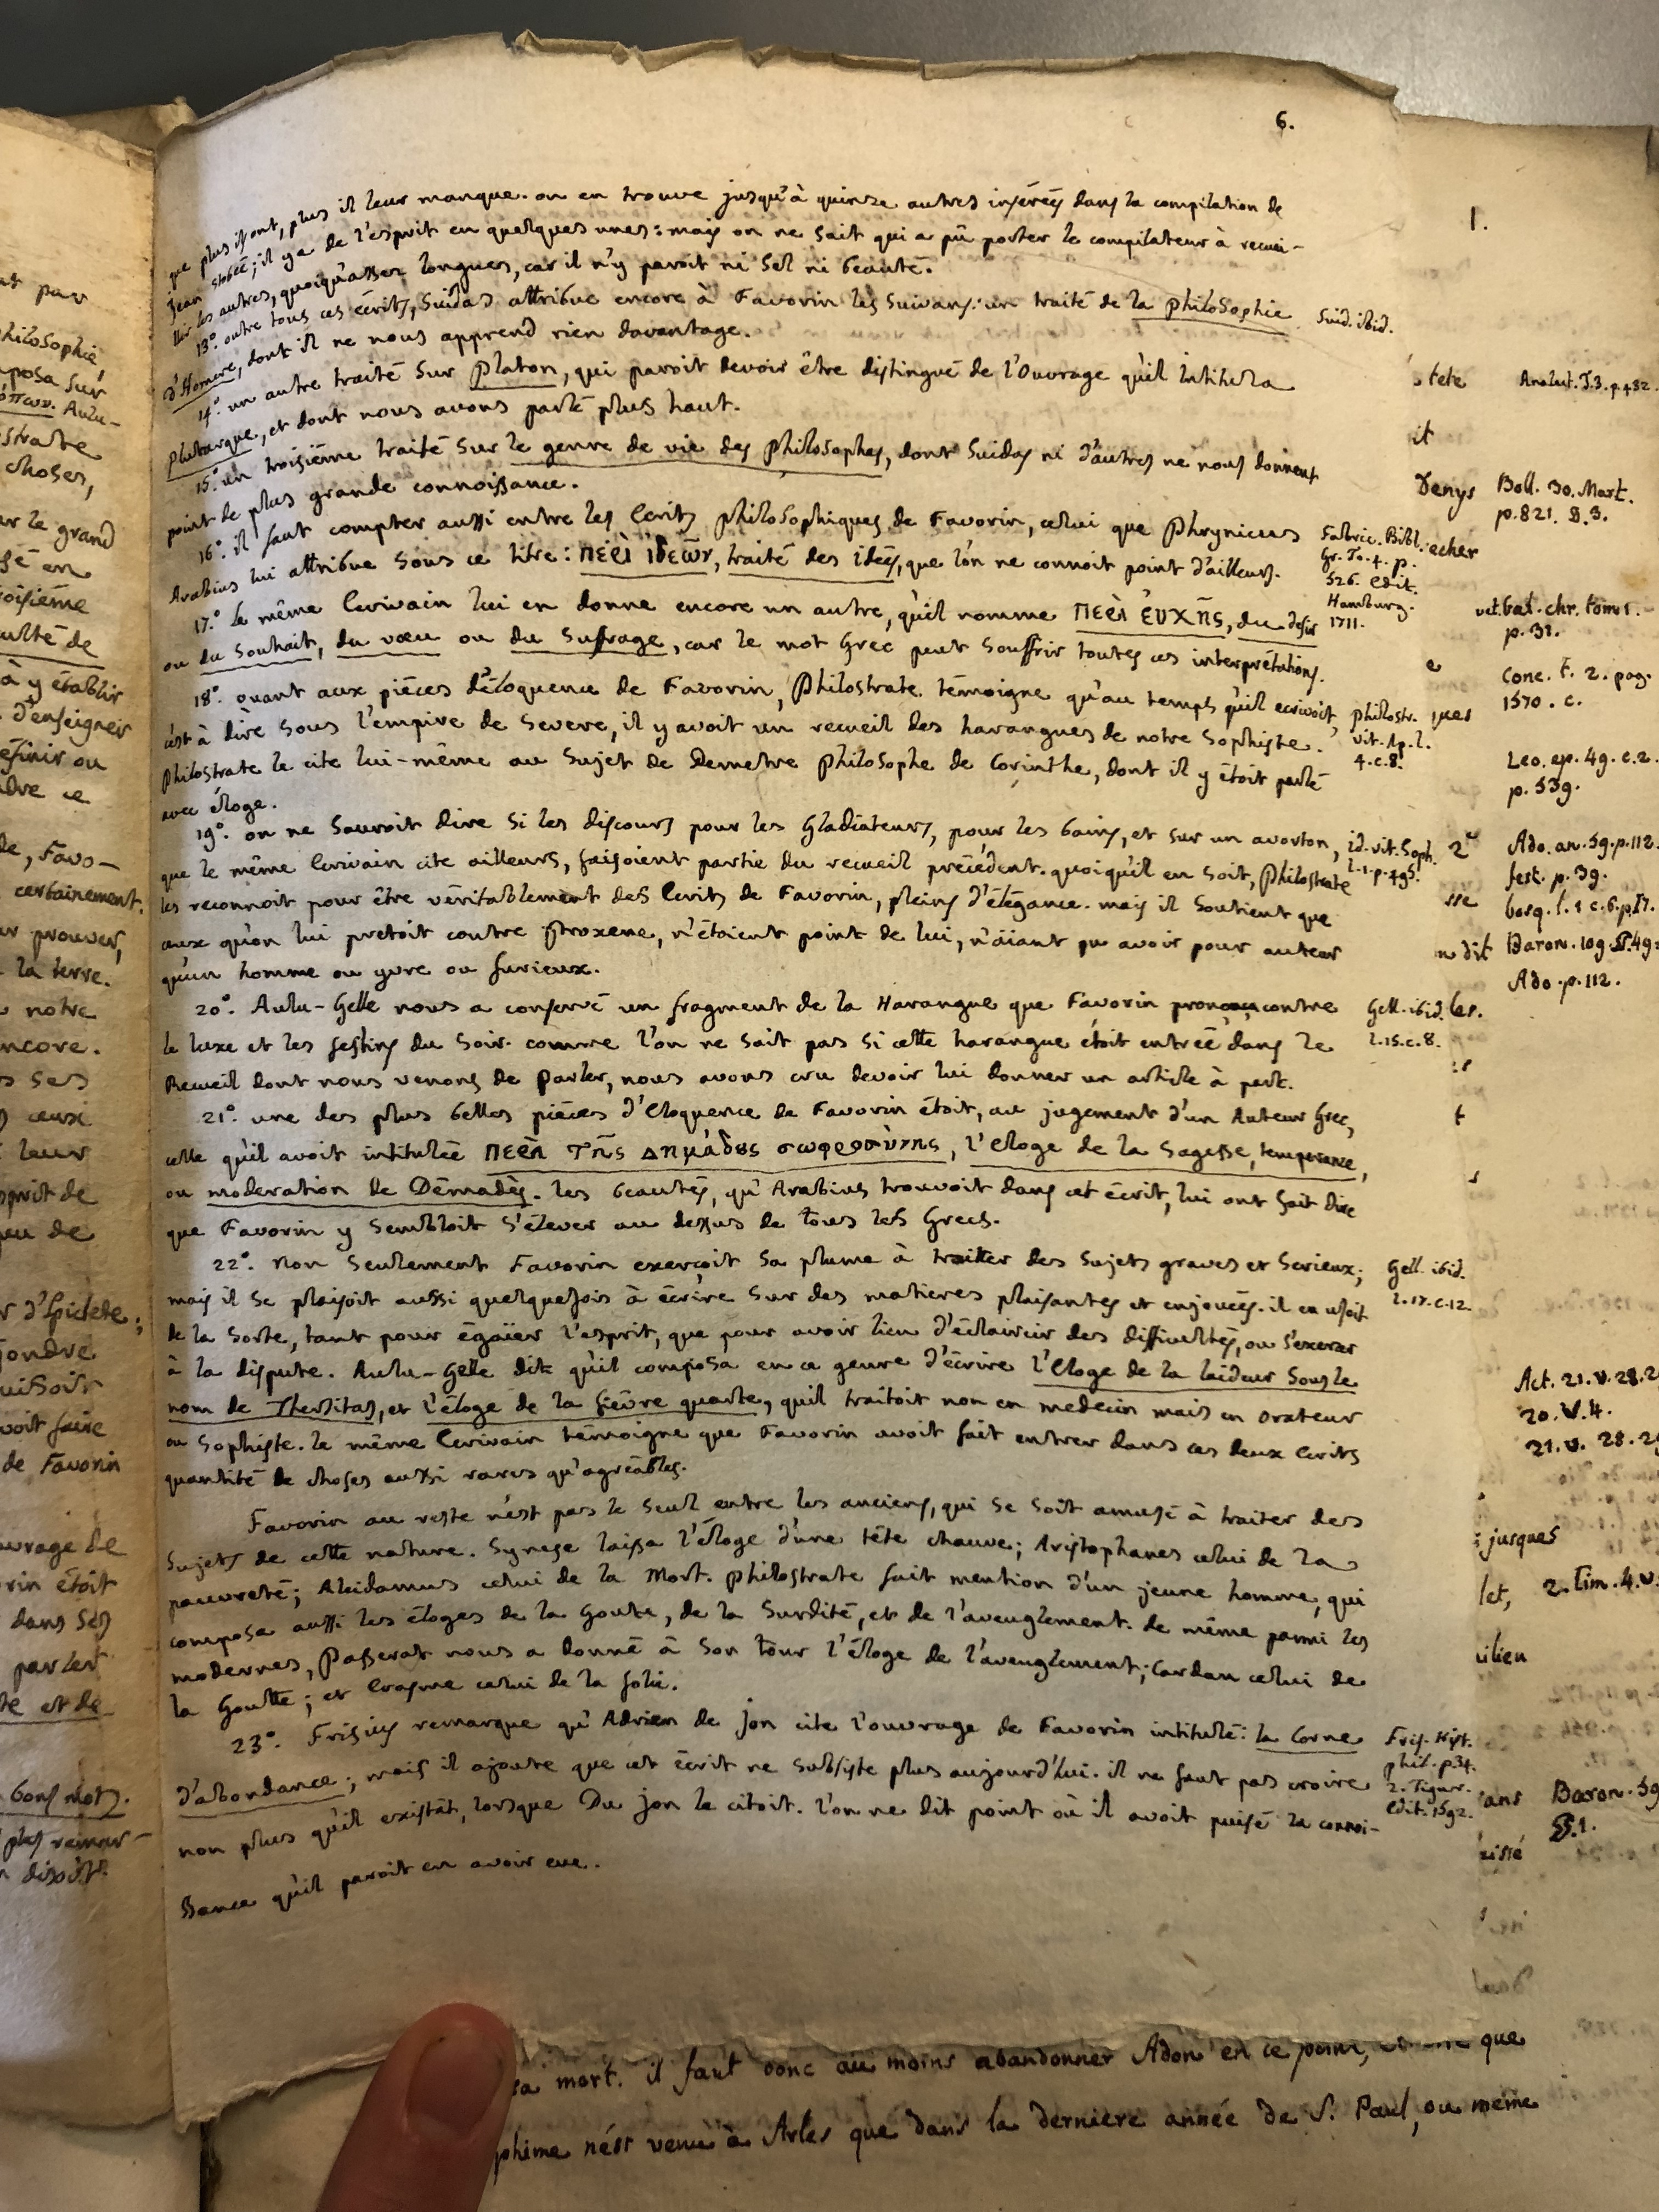 6.
que plus ils ont, plus il leur manque. on en trouve jusqu'à quinze autres insérés dans la compilation de
Jean stobée; il y a de l'esprit en quelques unes: mais on ne sait qui a pû porter le compilateur à recuei-
llir les autres, quoiqu'assez longues, car il n'y paroit ni sel ni beauté.
13°. outre tous ces écrits, Suidas attribue encore à Favorin les suivans: un traité de la philosophie
d'Homere, dont il ne nous apprend rien davantage.
Suid. ibid.
14°. un autre traité sur Platon, qui paroit devoir être distingué de l'Ouvrage qu'il intitula
Plutarque, et dont nous avons parlé plus haut.
15°. un troisième traité sur le genre de vie des philosophes, dont Suidas ni d'autres ne nous donnent
point de plus grande connoissance.
16°. il faut compter aussi entre les Ecrits philosophiques de Favorin, celui que Phrynicus
Arabius lui attribue sous ce titre: περὶ ἰδεῶν, traité des idées, que l'on ne connoit point d'ailleurs.
Fabric. Bibl.
Gr. To. 4. p.
526. edit.
Hamburg.
1711.
17°. Le même Ecrivain lui en donne encore un autre, qu'il nomme περὶ ἐυχῆς, du desir
ou du souhait, du vœu ou du suffrage, car le mot Grec peut souffrir toutes ces interprétations.
18°. quant aux pièces d'éloquence de Favorin, Philostrate témoigne qu'au temps qu'il ecrivoit,
c'est à dire sous l'empire de Severe, il y avoit un recueil des harangues de notre Sophiste.
Philostrate le cite lui-même au sujet de Demetre Philosophe de Corinthe, dont il y étoit parlé
avec éloge.
philostr.
vit. Ap. l.
4. c. 8.
19°. on ne sauroit dire si les discours pour les Gladiateurs, pour les bains, et sur un avorton,
que le même Ecrivain cite ailleurs, faisoient partie du recueil précédent. quoiqu'il en soit, Philostrate
les reconnoit pour être véritablement des Ecrits de Favorin, pleins d'élégance. mais il soutient que
ceux qu'on lui pretoit contre Proxene, n'étoient point de lui, n'aïant pu avoir pour auteur
qu'un homme ou yvre ou furieux.
id. vit. Soph.
l. 1. p. 495.
20°. Aulu-Gelle nous a conservé un fragment de la Harangue que Favorin prononça contre
le luxe et les festins du soir. comme l'on ne sait pas si cette harangue étoit entrée dans le
Recueil dont nous venons de parler, nous avons cru devoir lui donner un article à part.
Gell. ibid.
l. 15. c. 8.
21°. une des plus belles pièces d'Eloquence de Favorin étoit, au jugement d'un Auteur Grec,
celle qu'il avoit intitulée περὶ τῆς Δημάδους σωφροσύνης, l'Eloge de la Sagesse, temperance,
ou moderation de Démadès. les beautés, qu'Arabius trouvoit dans cet écrit, lui ont fait dire
que Favorin y sembloit s'élever au dessus de tous les Grecs.
22°. Non seulement Favorin exerçoit sa plume à traitter des sujets graves et serieux;
mais il se plaisoit aussi quelquefois à écrire sur des matieres plaisantes et enjouées. il en usoit
de la sorte, tant pour égaïer l'esprit, que pour avoir lieu d'éclaircir des difficultés, ou s'exercer
à la dispute. Aulu-Gelle dit qu'il composa en ce genre d'écrire l'Eloge de la laideur sous le
nom de Thersitas, et l'éloge de la fièvre quarte, qu'il traitoit non en medecin mais en orateur
ou Sophiste. le même Ecrivain témoigne que Favorin avoit fait entrer dans ces deux Ecrits
quantité de choses aussi rares qu'agréables.
Gell. ibid.
l. 17. c. 12.
Favorin au reste n'est pas le seul entre les anciens, qui se soit amusé à traiter des
sujets de cette nature. Synese laissa l'éloge d'une tête chauve; Aristophanes celui de la
pauvreté; Alcidamus celui de la Mort. Philostrate fait mention d'un jeune homme, qui
composa aussi les éloges de la Goute, de la Surdité, et de l'aveuglement. de même parmi les
modernes, Passerat nous a donné à son tour l'éloge de l'aveuglement; Cardan celui de
la Goutte; et Erasme celui de la folie.
23°. Frisius remarque qu'Adrien de Jon cite l'ouvrage de Favorin intitulé: la Corne
d'abondance; mais il ajoute que cet écrit ne subsiste plus aujourd'lui. il ne faut pas croire
non plus qu'il existât, lorsque Du jon le citoit. l'on ne dit point où il avoit puisé la connoi-
ssance qu'il paroit en avoir eue.
Fris. Hist.
phil. p. 34.
2. Tigur.
Edit. 1592.
sa mort. il faut donc au moins abandonner Adon en ce point, que
phime n'est venu à Arles que dans la derniere année de S. Paul, ou même
1.
tete
it
Denys
echer
e
ques
2e
sse
n dit
les.
t
s
jusques
let,
ilien
ans
Boll. 30. Mart.
p. 821. §. 3.
vet. Gal. chr. tom. 1.
p. 31.
Conc. t. 2. pag.
1570. c.
Leo. ep. 49. c. 2.
p. 539.
Ado. an. 59. p. 112.
fest. p. 39.
Ado. p. 112.
Act. 21. v. 28. 2
20. v. 4.
21. v. 28. 29
2. Tim. 4. v.
Baron. 59
§. 1.
philosophie
mposa sur
Aulu-
choses,
ar le grand
culté de
à y établir
d'enseigner
efinir ou
de, Favo-
certainement.
prouver,
la terre.
notre
ncore.
ses
ceux
leur
prit de
peu de
r d'Epictete;
voit faire
de Favorin
uvrage de
rin étoit
dans ses
parler
te et de
bons mots.
plus remar-